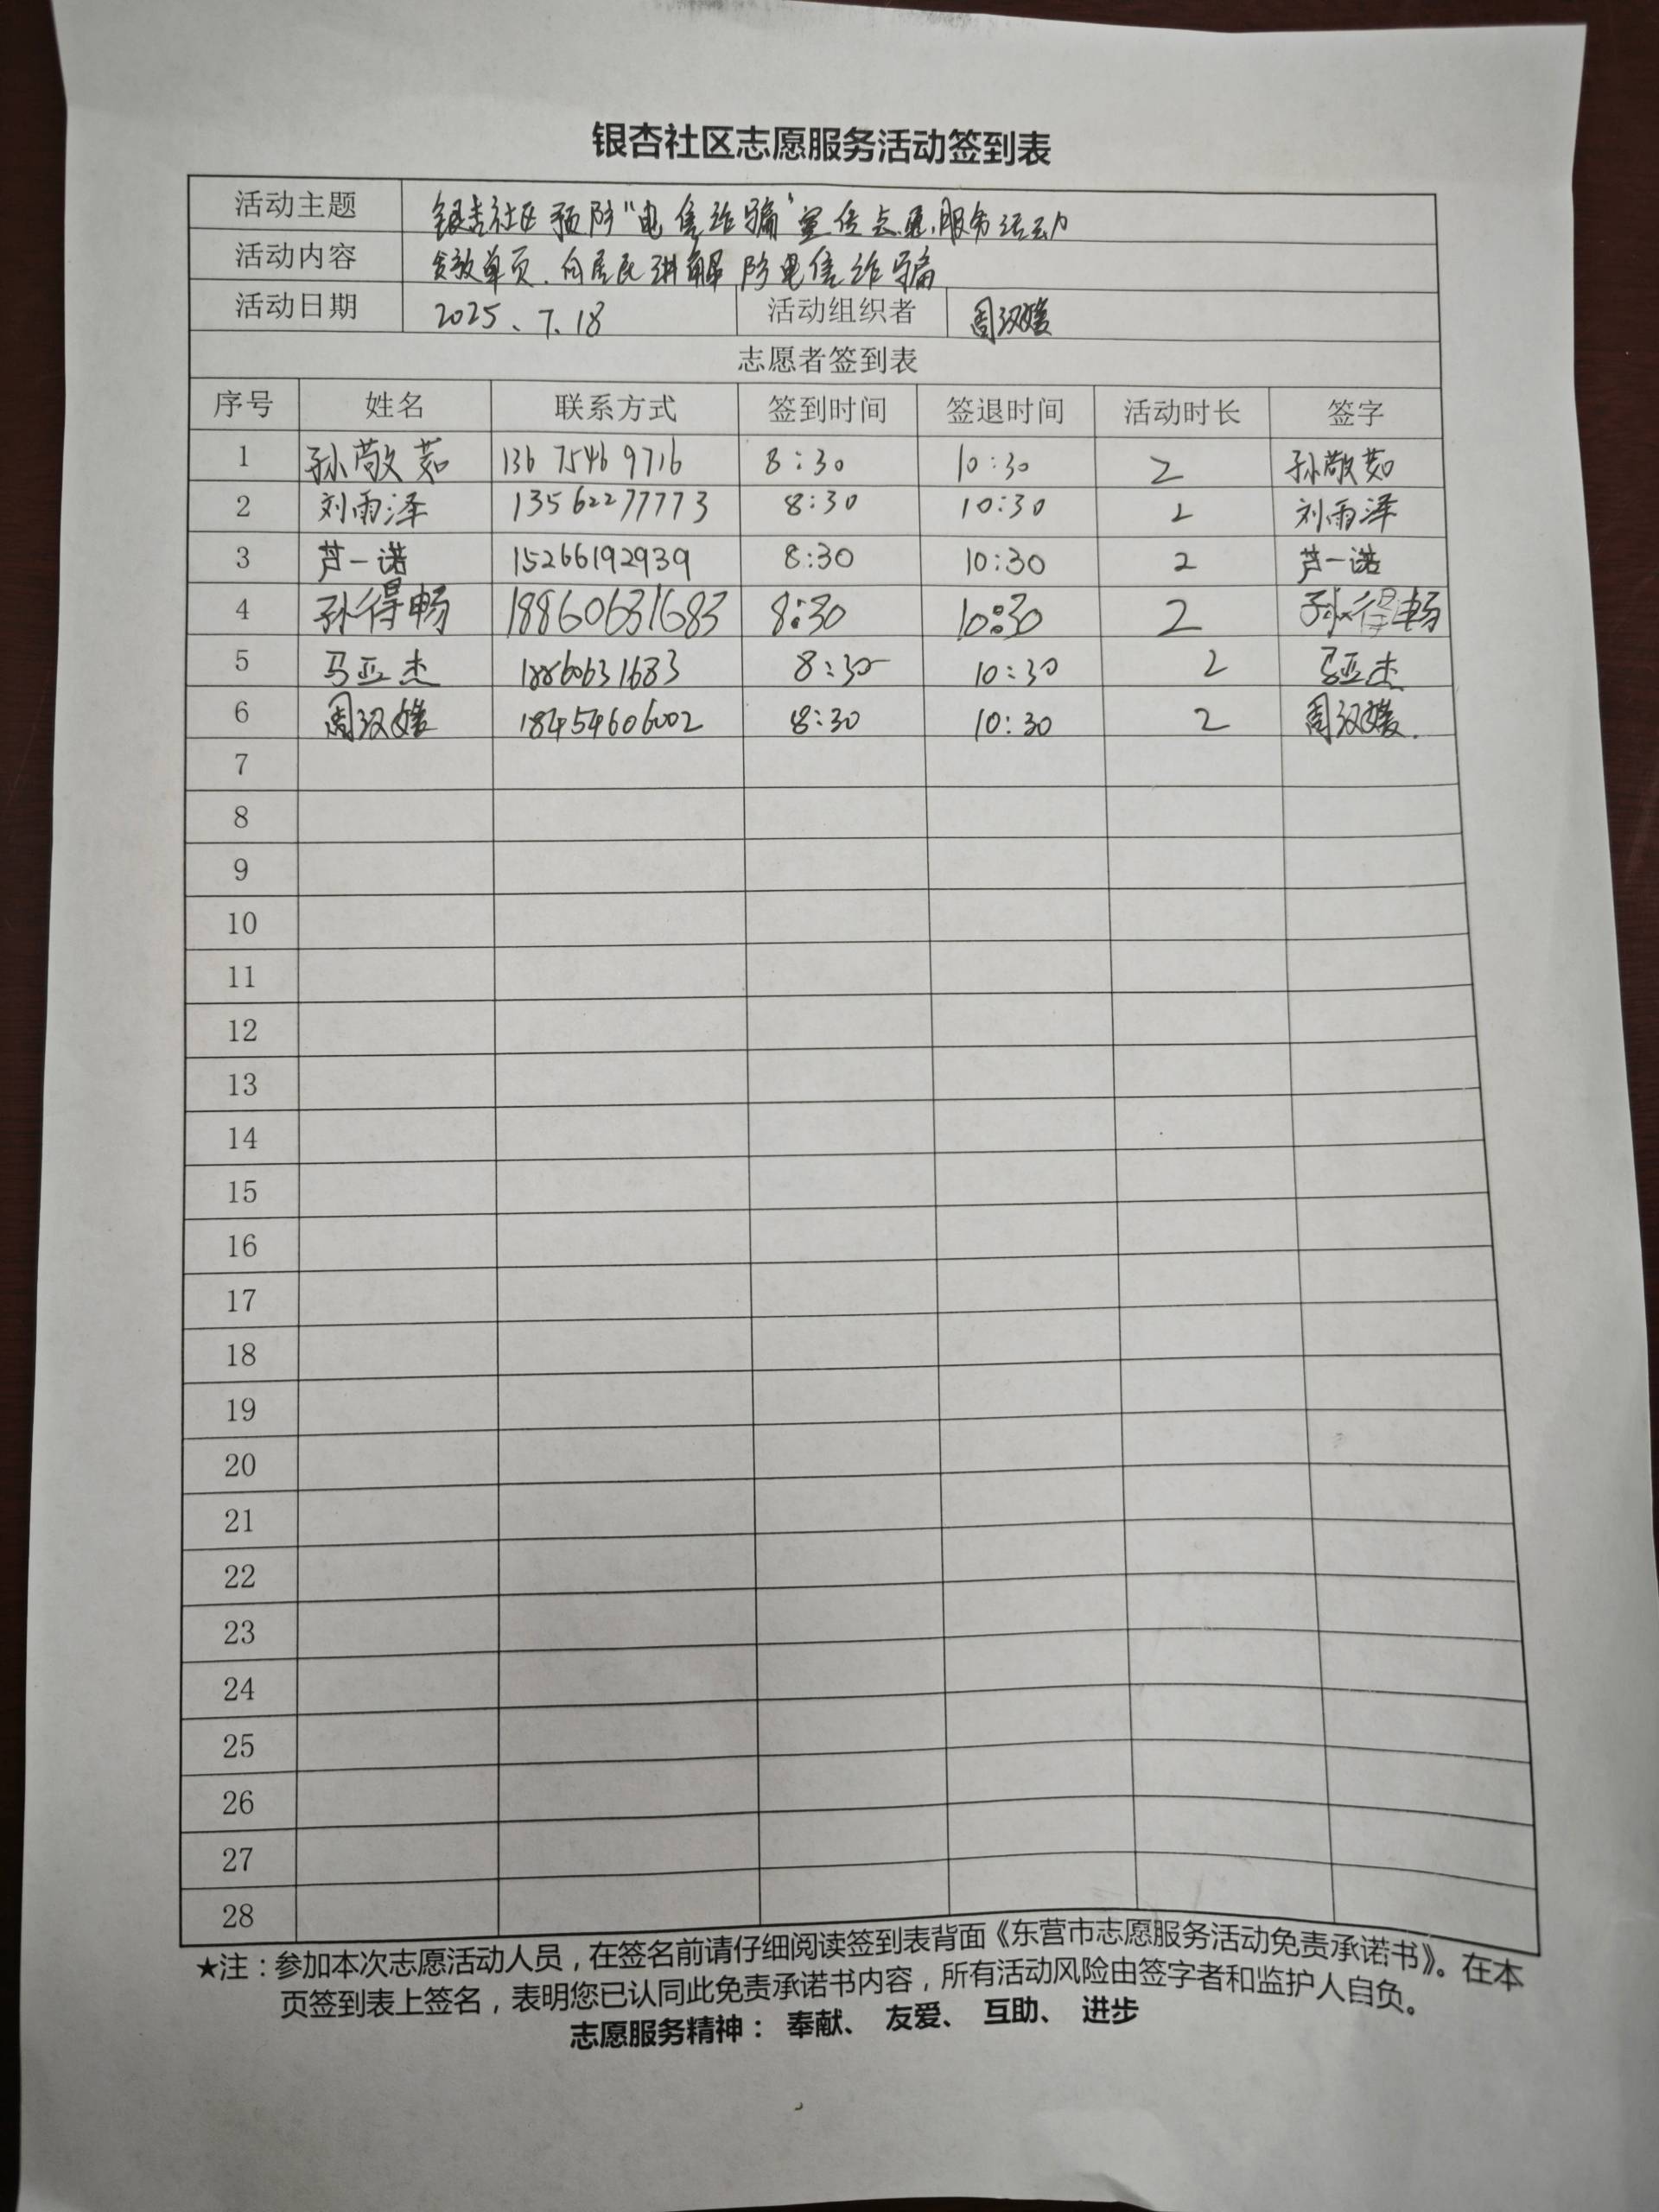 银杏社区志愿服务活动签到表
活动主题 银杏社区预防“电信诈骗”宣传志愿服务活动
活动内容 发放单页、向居民讲解防电信诈骗
活动日期 2025、7、18 活动组织者 周汉媛
志愿者签到表
序号 姓名 联系方式 签到时间 签退时间 活动时长 签字
1 孙敬茹 136 7546 9716 8:30 10:30 2 孙敬茹
2 刘雨泽 13562277773 8:30 10:30 2 刘雨泽
3 芦一诺 15266192939 8:30 10:30 2 芦一诺
4 孙得畅 18860631683 8:30 10:30 2 孙得畅
5 马亚杰 18860631683 8:30 10:30 2 马亚杰
6 周汉媛 18454606002 8:30 10:30 2 周汉媛.
7
8
9
10
11
12
13
14
15
16
17
18
19
20
21
22
23
24
25
26
27
28
★注：参加本次志愿活动人员，在签名前请仔细阅读签到表背面《东营市志愿服务活动免责承诺书》。在本
页签到表上签名，表明您已认同此免责承诺书内容，所有活动风险由签字者和监护人自负。
志愿服务精神： 奉献、 友爱、 互助、 进步